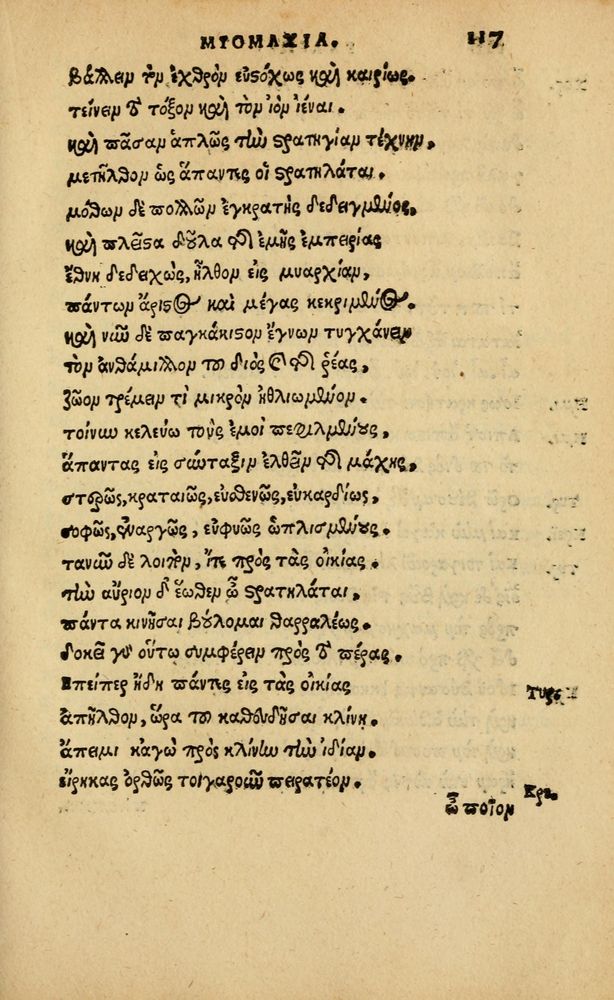 ΜΥΟΜΑΧΙΑ. 117
βάλλειν τὸν ἐχθρὸν εὐστόχως καὶ καιρίως.
τείνειν τὸ τόξον καὶ τὸν ἰὸν ἱέναι.
καὶ πᾶσαν ἁπλῶς τὴν στρατηγίαν τέχνην,
μετῆλθον ὡς ἅπαντες οἱ στρατηλάται.
μόθων δὲ πολλῶν ἐγκρατὴς δεδειγμένος,
καὶ πλεῖστα δοῦλα τῆς ἐμῆς ἐμπειρίας
ἔθνη δεδειχὼς, ἦλθον εἰς μυαρχίαν,
πάντων ἄριστος καὶ μέγας κεκριμένος.
καὶ νῦν δὲ παγκάκιστον ἔγνων τυγχάνειν
τὸν ἀνθάμιλλον τοῦ διὸς καὶ τῆς ῥέας,
ζῶον τρέμειν τὶ μικρὸν ἠθλιωμένον.
τοίνυν κελεύω τοὺς ἐμοὶ πεφιλμένους,
ἅπαντας εἰς σύνταξιν ἐλθεῖν τῆς μάχης,
στερρῶς, κραταιῶς, εὐσθενῶς, εὐκαρδίως,
σοφῶς, ἐναργῶς, εὐφυῶς ὡπλισμένους.
τανῦν δὲ λοιπὸν, ἴτε πρὸς τὰς οἰκίας.
τὴν αὔριον δ' ἕωθεν ὦ στρατηλάται,
πάντα κινῆσαι βούλομαι θαρραλέως.
δοκεῖ γὰρ οὕτω συμφέρειν πρὸς τὸ πέρας.
Ἐπείπερ ἤδη πάντες εἰς τὰς οἰκίας Τυρς
ἀπῆλθον, ὥρα τοῦ καθευδῆσαι κλίνῃ.
ἄπειμι κἀγὼ πρὸς κλίνην τὴν ἰδίαν.
εἴρηκας ὀρθῶς τοιγαροῦν περατέον. Κρε.
ὦ ποῖον